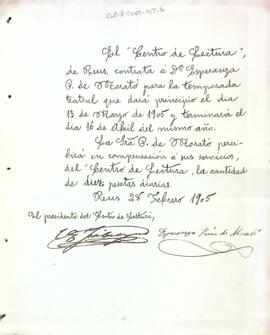 El "Centro de Lectura",
de Reus, contrata á Dª Esperanza
P. de Morató para la temporada
teatral que dará principio el dia
13 de Marzo de 1905 y terminará el
dia 16 de Abril del mismo año.
La Sra. P. de Morató perci-
birá en compensación á sus servicios,
del "Centro de Lectura", la cantidad
de diez pesetas diarias.
Reus 28 Febrero 1905
El presidente del Centro de Lectura,
Esperanza de Morató